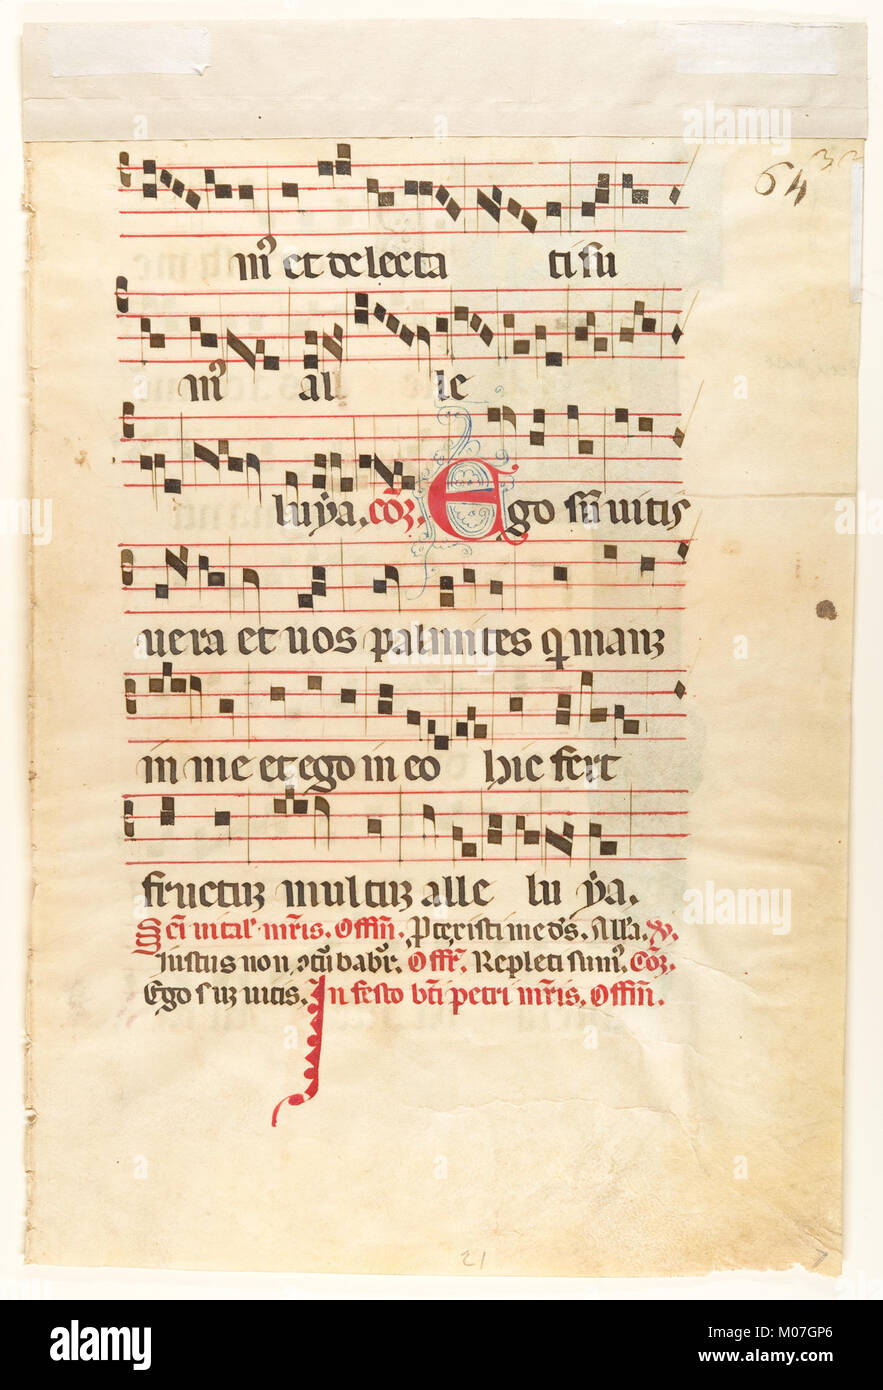 64 32
m᷒ et delecta ti su
m᷒ al le
luya. Co᷒. Ego sū uitis
uera et uos palmites q manꝫ
in me et ego in eo hic fert
fructuꝫ multuꝫ alle lu ya.
Sc̄i uital' mr̄is. Offm̄. Protexisti me ds̄. All'a. ꝟ.
Iustus non ↄtūbabr̄. Offr̄. Repleti sum᷒. Co᷒.
Ego suꝫ uitis. In festo bt̄i petri mr̄is. Offm̄.
21
alamy
Image ID: M07GP6
www.alamy.com